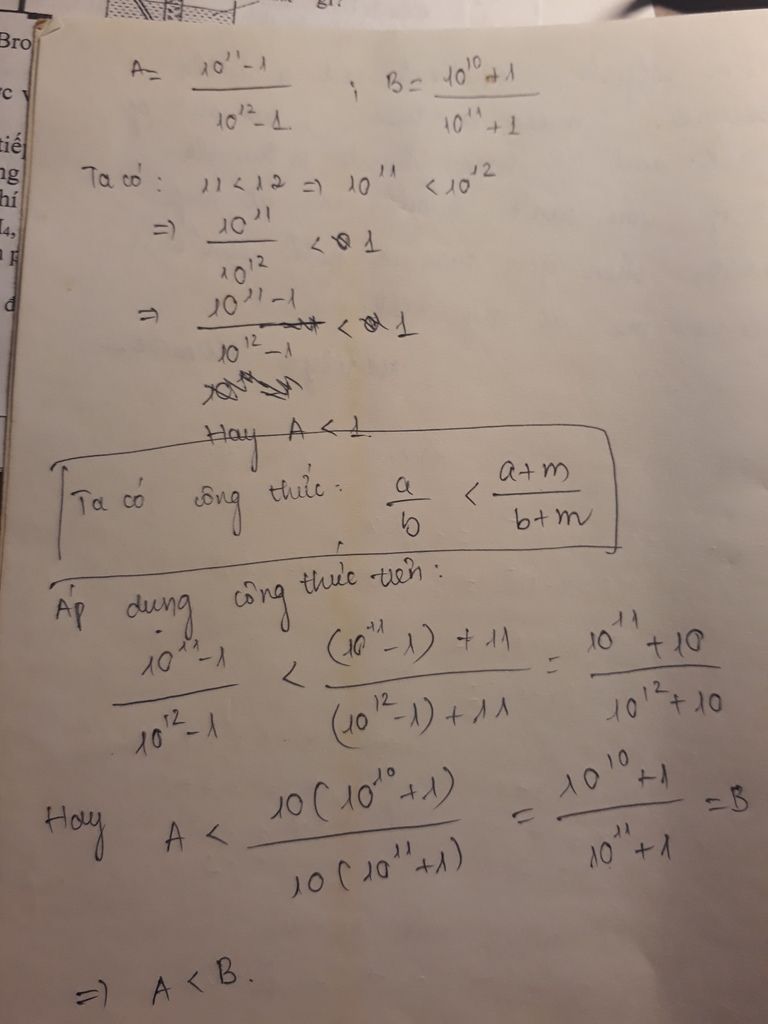 gì?
Bro
A = (10^11 - 1)/(10^12 - 1) ; B = (10^10 + 1)/(10^11 + 1)
Ta có: 11 < 12 => 10^11 < 10^12
=> 10^11/10^12 < 1
=> (10^11 - 1)/(10^12 - 1) < 1
Hay A < 1
Ta có công thức: a/b < (a+m)/(b+m)
Áp dụng công thức trên:
(10^11 - 1)/(10^12 - 1) < ((10^11 - 1) + 11)/((10^12 - 1) + 11) = (10^11 + 10)/(10^12 + 10)
Hay A < 10(10^10 + 1)/10(10^11 + 1) = (10^10 + 1)/(10^11 + 1) = B
=> A < B.